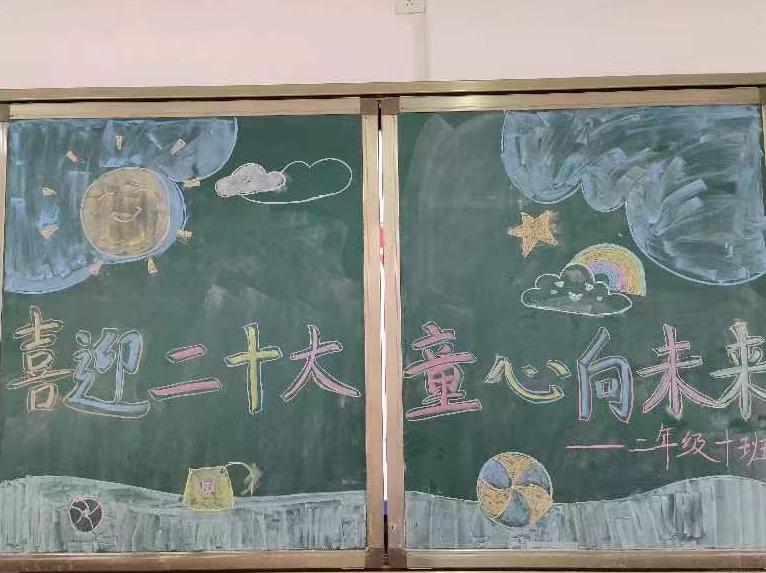 喜迎二十大 童心向未来
——二年级十班